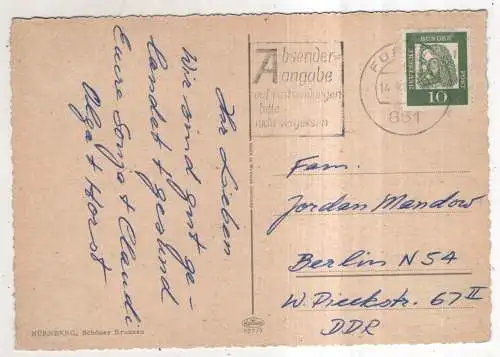 Ihr Lieben
Wir sind gut ge-
landet + gesund
Eure Sonja + Claudi
Olga + Horst
NÜRNBERG, Schöner Brunnen
Absender-
angabe
auf Postsendungen
bitte
nicht vergessen
FÜ
14
851
DEUTSCHE
BUNDES
POST
10
Fam.
Jordan Mandow
Berlin N 54
W. Pieckstr. 67 II
DDR